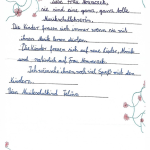 Liebe Frau Nowaczek,
sie sind eine ganz, ganz tolle
Musikschullehrerin.
Die Kinder freuen sich immer wenn sie mit
ihnen Musik lernen dürfen.
Die Kinder freuen sich auf neue Lieder, Musik
und natürlich auf Frau
Ich wünsche ihnen noch viel Spaß mit den
Kindern.
Dein Musikschulkind